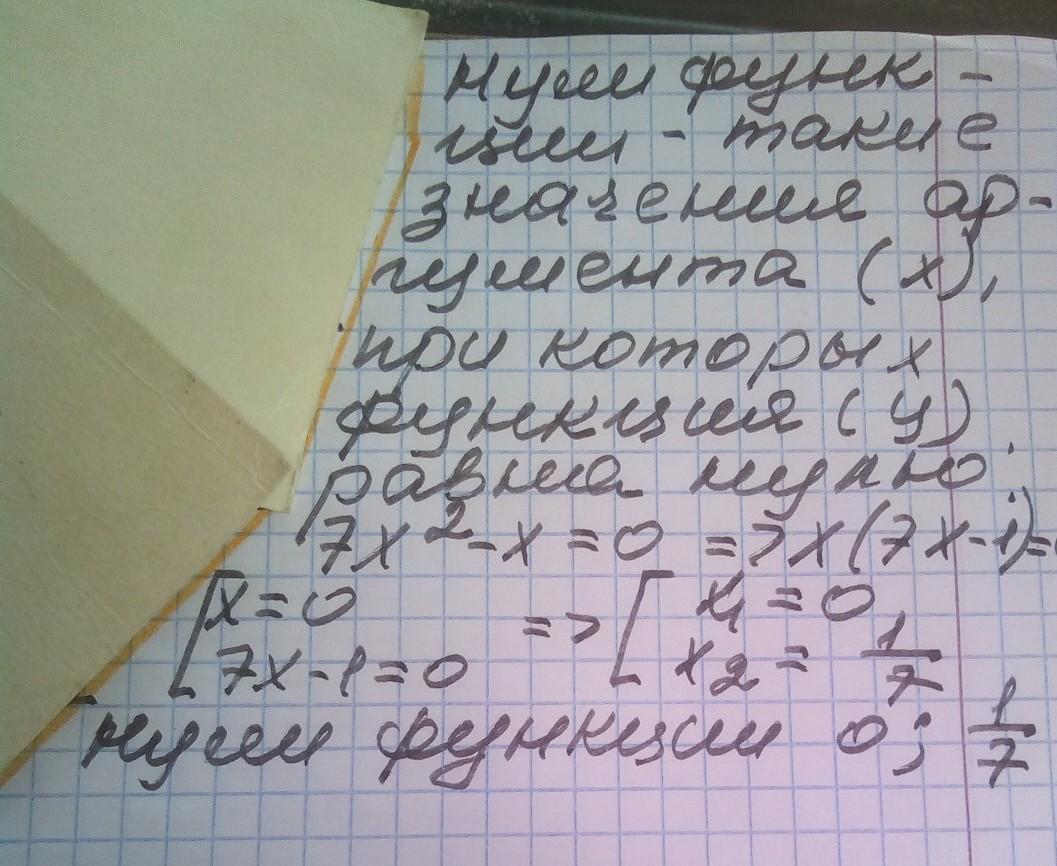 нули функ-
ции - такие
значения ар-
гумента (x),
при которых
функция (у)
равна нулю.
7x² - x = 0 => x(7x-1)=
[x = 0
7x-1 = 0 => [x₁ = 0,
x₂ = 1/7
нули функции 0; 1/7